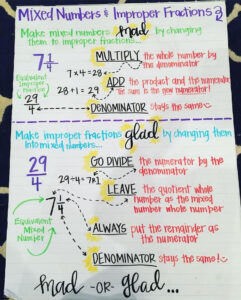 Mixed Numbers & Improper Fractions
Make mixed numbers mad by changing
them to improper fractions...
7 1/4
MULTIPLY the whole number by
the denominator
7 x 4 = 28
Equivalent
Improper
Fraction
29/4
ADD the product and the numerator
28 + 1 = 29
the sum is the new numerator!
DENOMINATOR stays the same
Make improper fractions glad by changing them
into mixed numbers...
29/4
GO DIVIDE the numerator by the
denominator
29 ÷ 4 = 7 R1
LEAVE the quotient whole
number as the mixed
number whole number
7 1/4
Equivalent
Mixed
Number
ALWAYS put the remainder as
the numerator
DENOMINATOR stays the same!
mad -OR- glad...